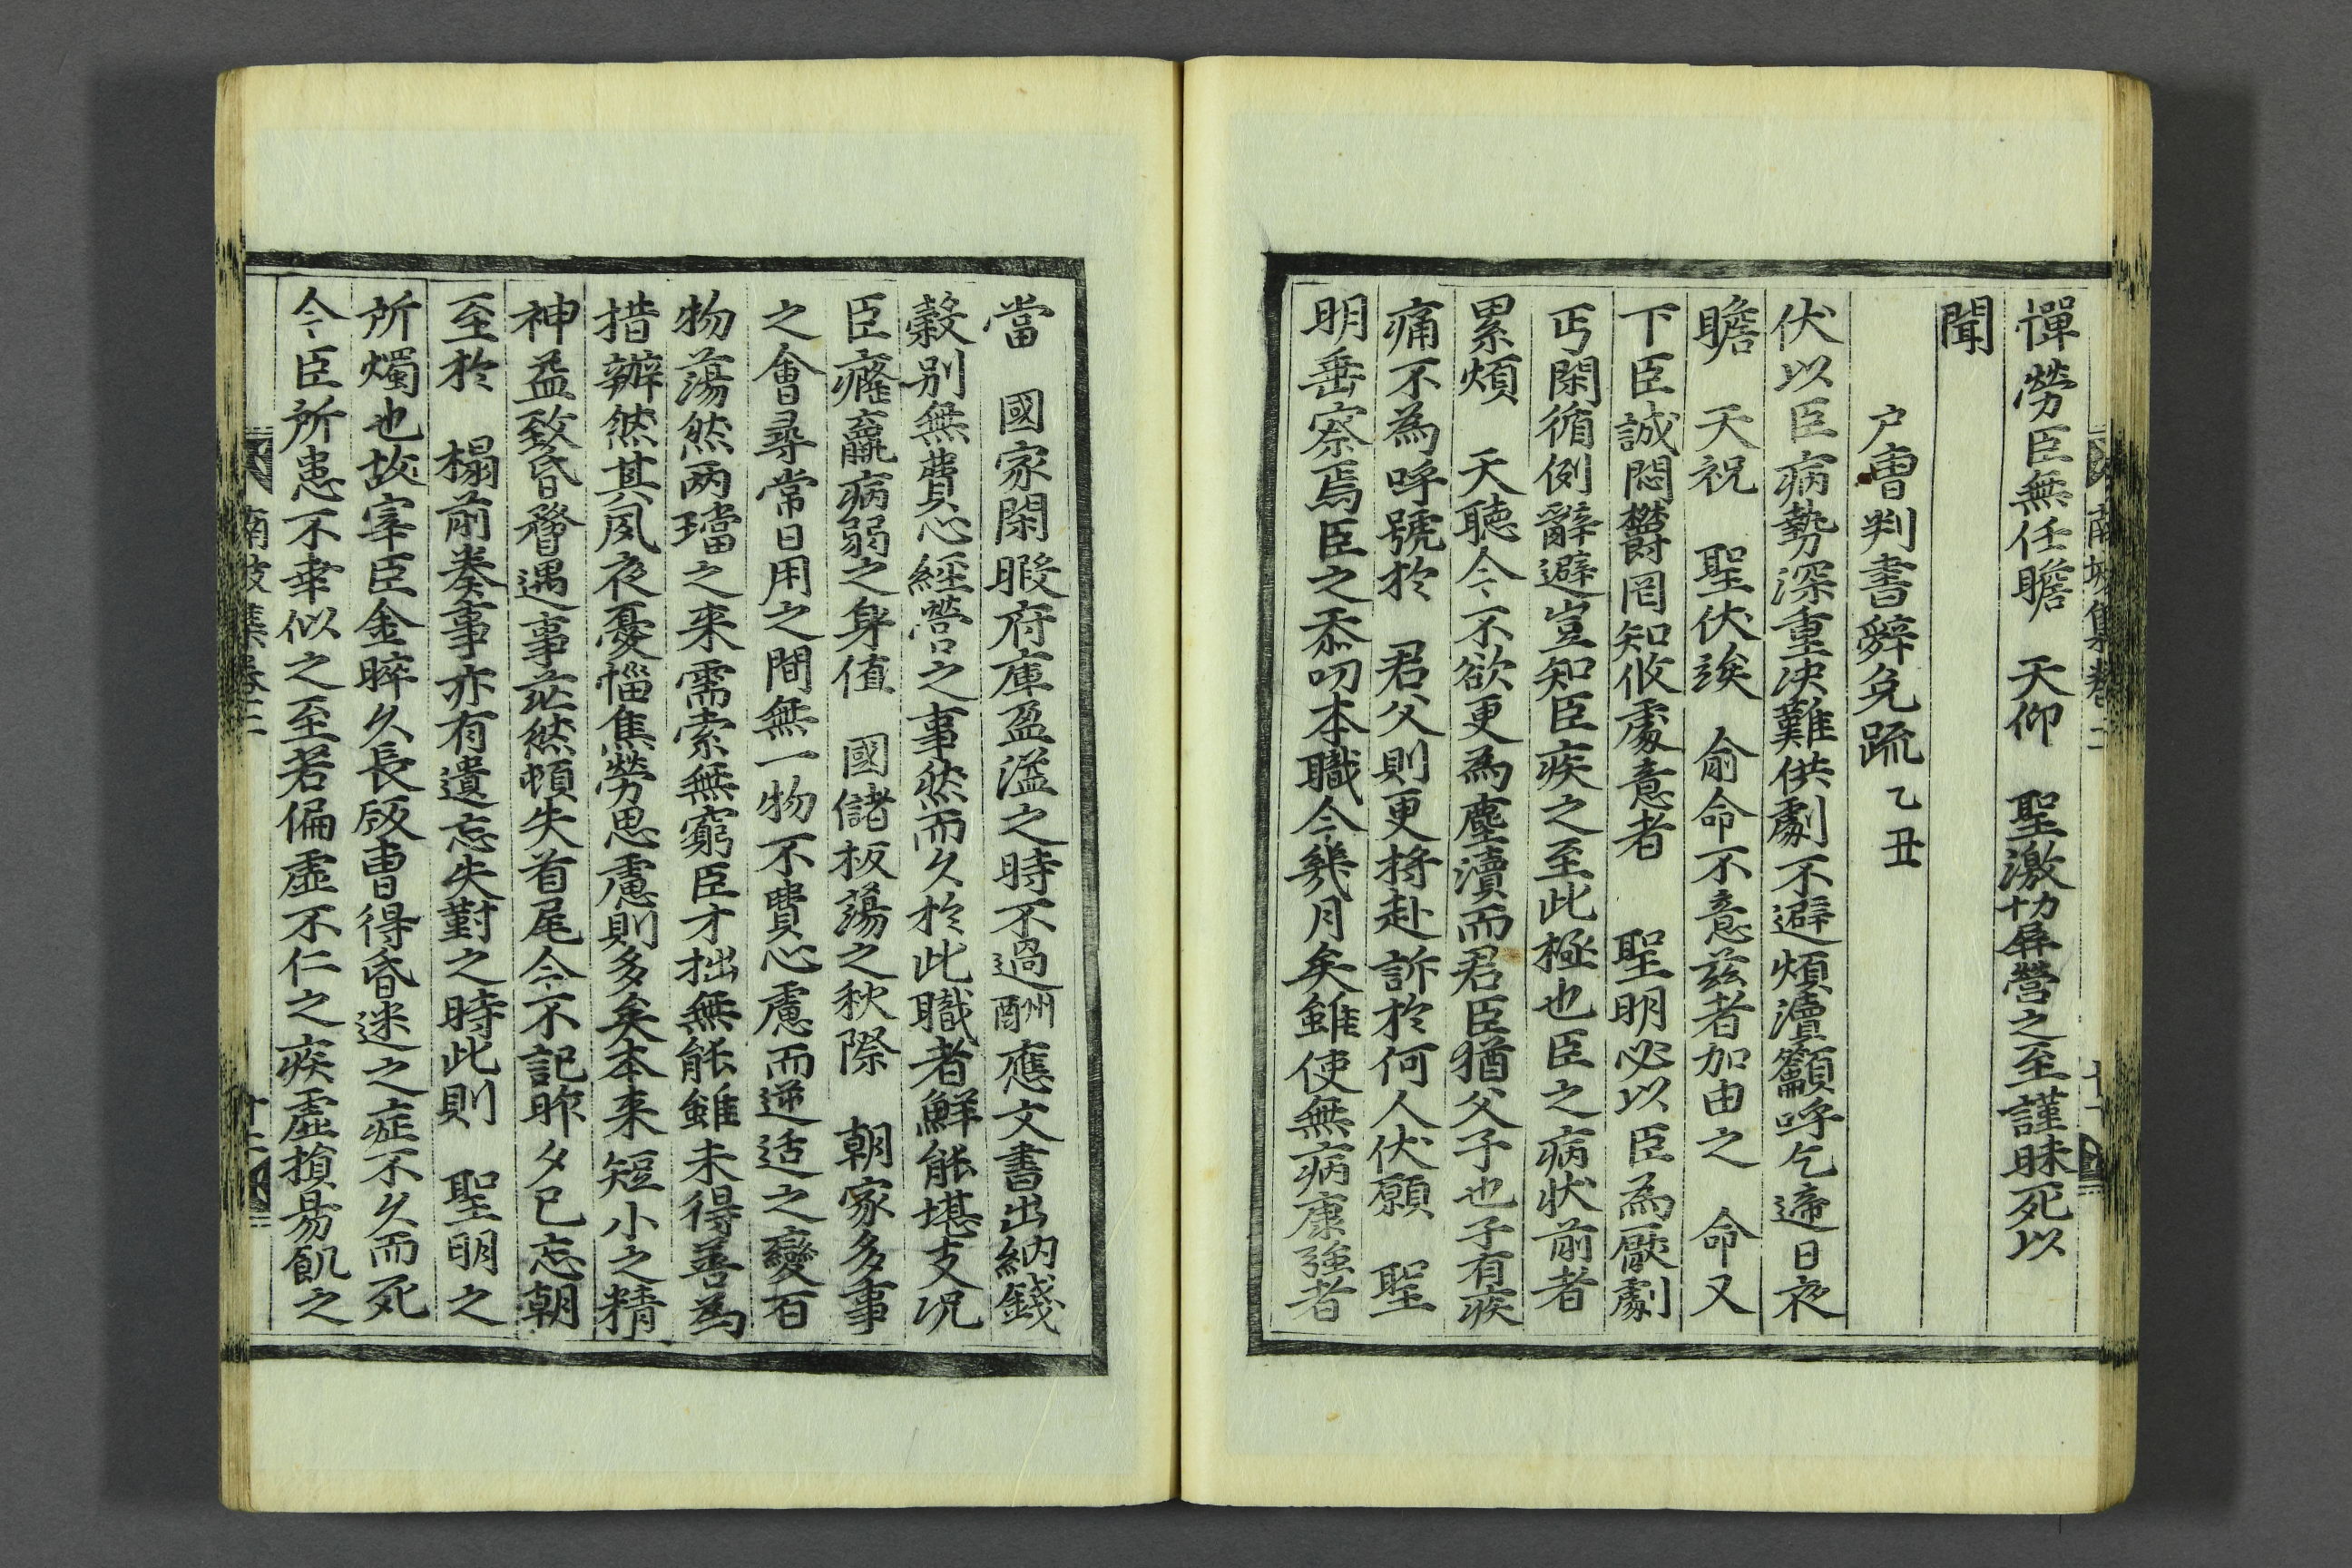 憚勞臣無任瞻　天仰　聖激切屛營之至謹昧死以
聞
戶曺判書辭免䟽 乙丑
伏以臣病勢深重决難供劇不避煩瀆籲呼乞遆日夜
瞻　天祝　聖伏俟　俞命不意兹者加由之　命又
下臣誠悶欝罔知攸處意者　聖明必以臣為厭劇
丐閑循例辭避豈知臣疾之至此極也臣之病狀前者
累煩　天聽今不欲更為塵瀆而君臣猶父子也子有疾
痛不為呼號於　君父則更將赴訴於何人伏願　聖
明垂察焉臣之忝叨本職今幾月矣雖使無病康強者
當　國家閑暇府庫盈溢之時不過酬應文書出納錢
穀別無費心經營之事然而久於此職者鮮能堪支况
臣癃羸病弱之身值　國儲板蕩之秋際　朝家多事
之會尋常日用之間無一物不費心慮而逆适之變百
物蕩然两璫之来需索無窮臣才拙無能雖未得善為
措辦然其夙夜憂惱焦勞思慮則多矣本来短小之精
神益致昏瞀遇事茫然頓失首尾今不記昨夕已忘朝
至於　榻前奏事亦有遺忘失對之時此則　聖明之
所燭也故宰臣金睟久長版曺得昏迷之症不久而死
今臣所患不幸似之至若偏虛不仁之疾虛損昜飢之
南坡集卷二
南坡集卷二